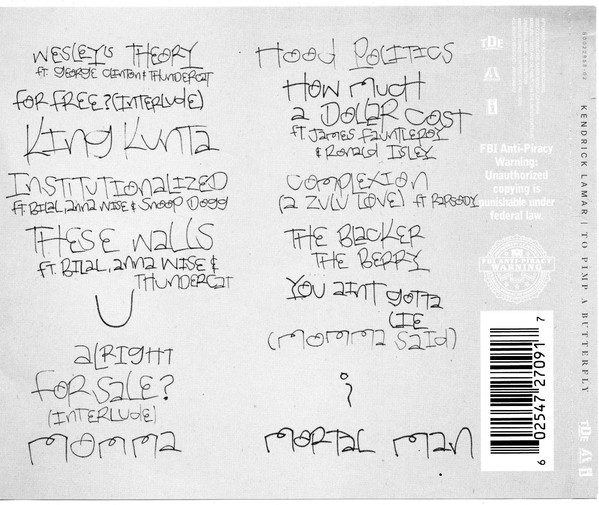 WESLEY'S THEORY
ft. GEORGE CLINTON & THUNDERCAT
FOR FREE? (INTERLUDE)
KING KUNTA
INSTITUTIONALIZED
ft. BILAL, ANNA WISE & SNOOP DOGG
THESE WALLS
ft. BILAL, ANNA WISE &
THUNDERCAT
U
ALRIGHT
FOR SALE?
(INTERLUDE)
MOMMA
HOOD POLITICS
HOW MUCH
A DOLLAR COST
ft. JAMES FAUNTLEROY
& RONALD ISLEY
COMPLEXION
(A ZULU LOVE) ft RAPSODY
THE BLACKER
THE BERRY
YOU AINT GOTTA
LIE
(MOMMA SAID)
i
MORTAL MAN
TDE
FBI Anti-Piracy
Warning:
Unauthorized
copying is
punishable under
federal law.
FBI ANTI-PIRACY
WARNING
6 02547 27091 7
KENDRICK LAMAR | TO PIMP A BUTTERFLY
TDE